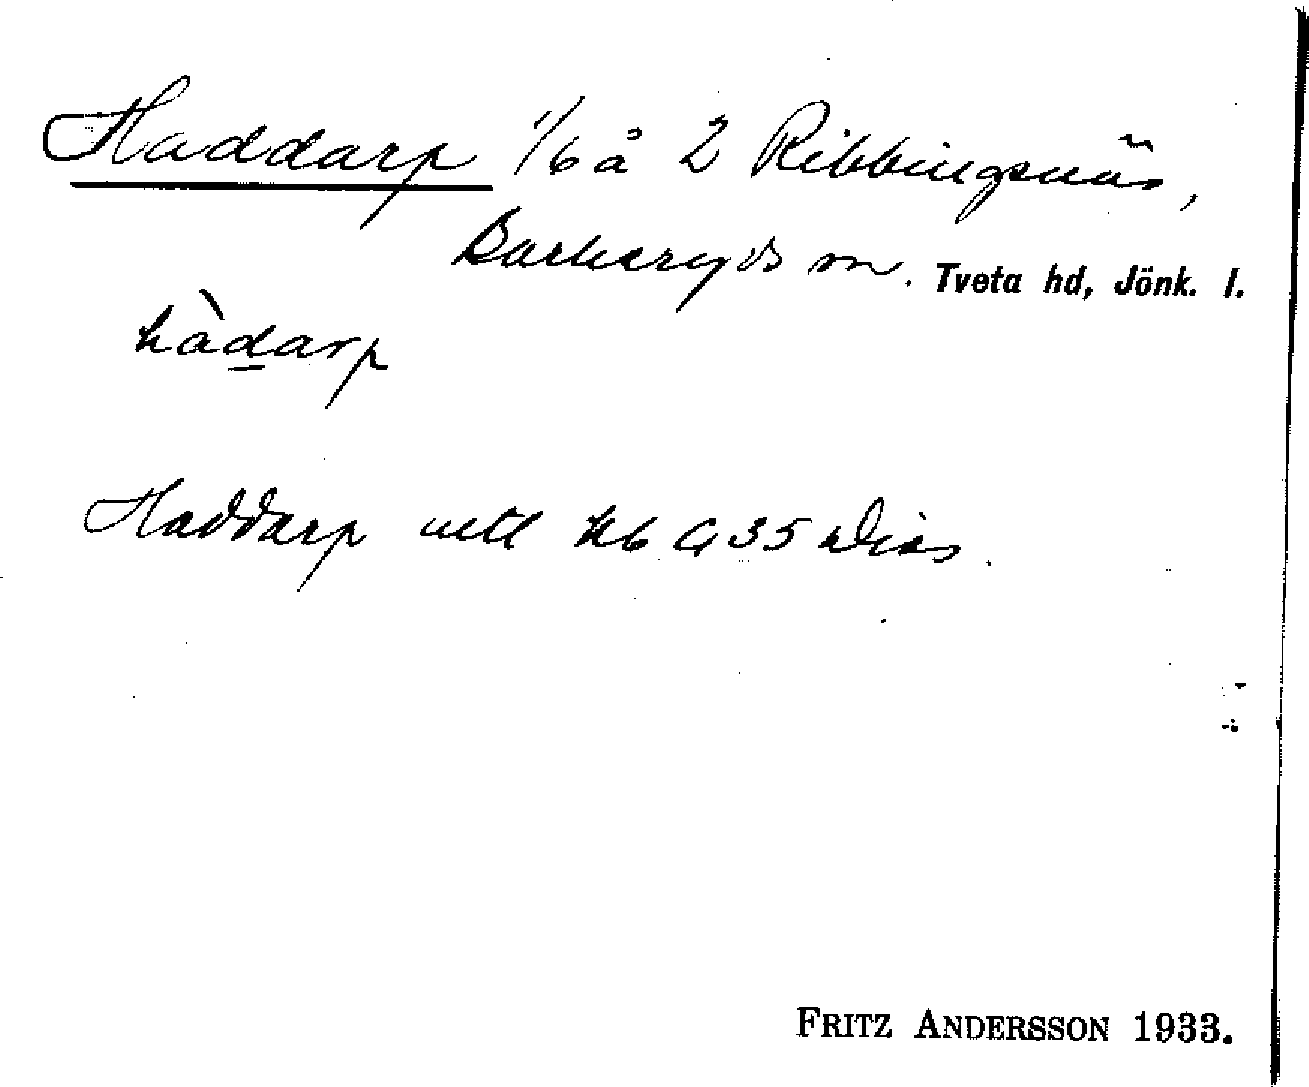 Haddarp 1/6 å 2 Ribbingsnäs,
Barkeryds sn. Tveta hd, Jönk. l.
hàdarp
Haddarp uttl kb G 35
FRITZ ANDERSSON 1933.